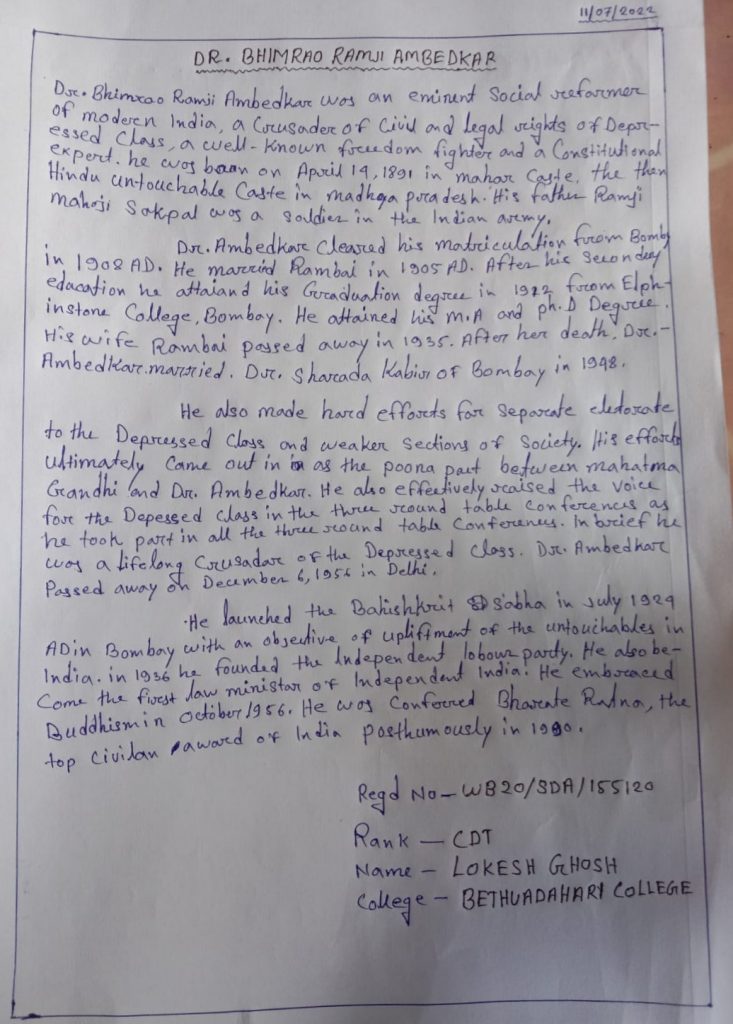 11/07/2022
DR. BHIMRAO RAMJI AMBEDKAR
Dr. Bhimrao Ramji Ambedkar was an eminent Social reformer
of modern India, a Crusader of Civil and legal rights of Depr-
essed Class, a well-known freedom fighter and a Constitutional
expert. he was baan on April 14, 1891 in mahar Caste, the then
Hindu untouchable Caste in madhya pradesh. His father Ramji
mahoji Sakpal was a soldier in the Indian army.
Dr. Ambedkar Cleared his matriculation from Bomby
in 1908 AD. He married Rambai in 1905 AD. After his Secondey
education he attaiand his Graduation degree in 1912 from Elph-
instone College, Bombay. He attained his M.A and ph.D Degree.
His wife Rambai passed away in 1935. After her death, Dr.-
Ambedkar married. Dr. Sharada Kabir of Bombay in 1948.
He also made hard efforts for Separate eletorate
to the Depressed Class and weaker Sections of Society. His efforts
ultimately Came out in in as the poona pact between mahatma
Gandhi and Dr. Ambedkar. He also effectively raised the Voice
for the Depessed class in the three round table Conferences as
he took part in all the three round table Conferences. In brief he
was a lifelong Crusadar of the Depressed Class. Dr. Ambedkar
Passed away on December 6, 1956 in Delhi.
He launched the Bahishkrit Sabha in July 1924
AD in Bombay with an objective of upliftment of the untouchables in
India. in 1936 he founded the Independent labour party. He also be-
Come the first law ministar of Independent India. He embraced
Buddhism in October 1956. He was Conferred Bharate Ratna, the
top Civilan award of India posthumously in 1990.
Regd No - WB20/SDA/155120
Rank - CDT
Name - LOKESH GHOSH
College - BETHUADAHARI COLLEGE